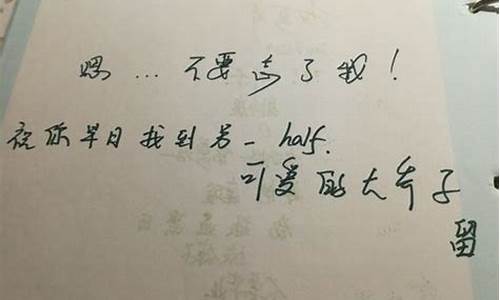 嘿…不要忘了我!
祝你早日找到另一half.
可爱的大爷子
留